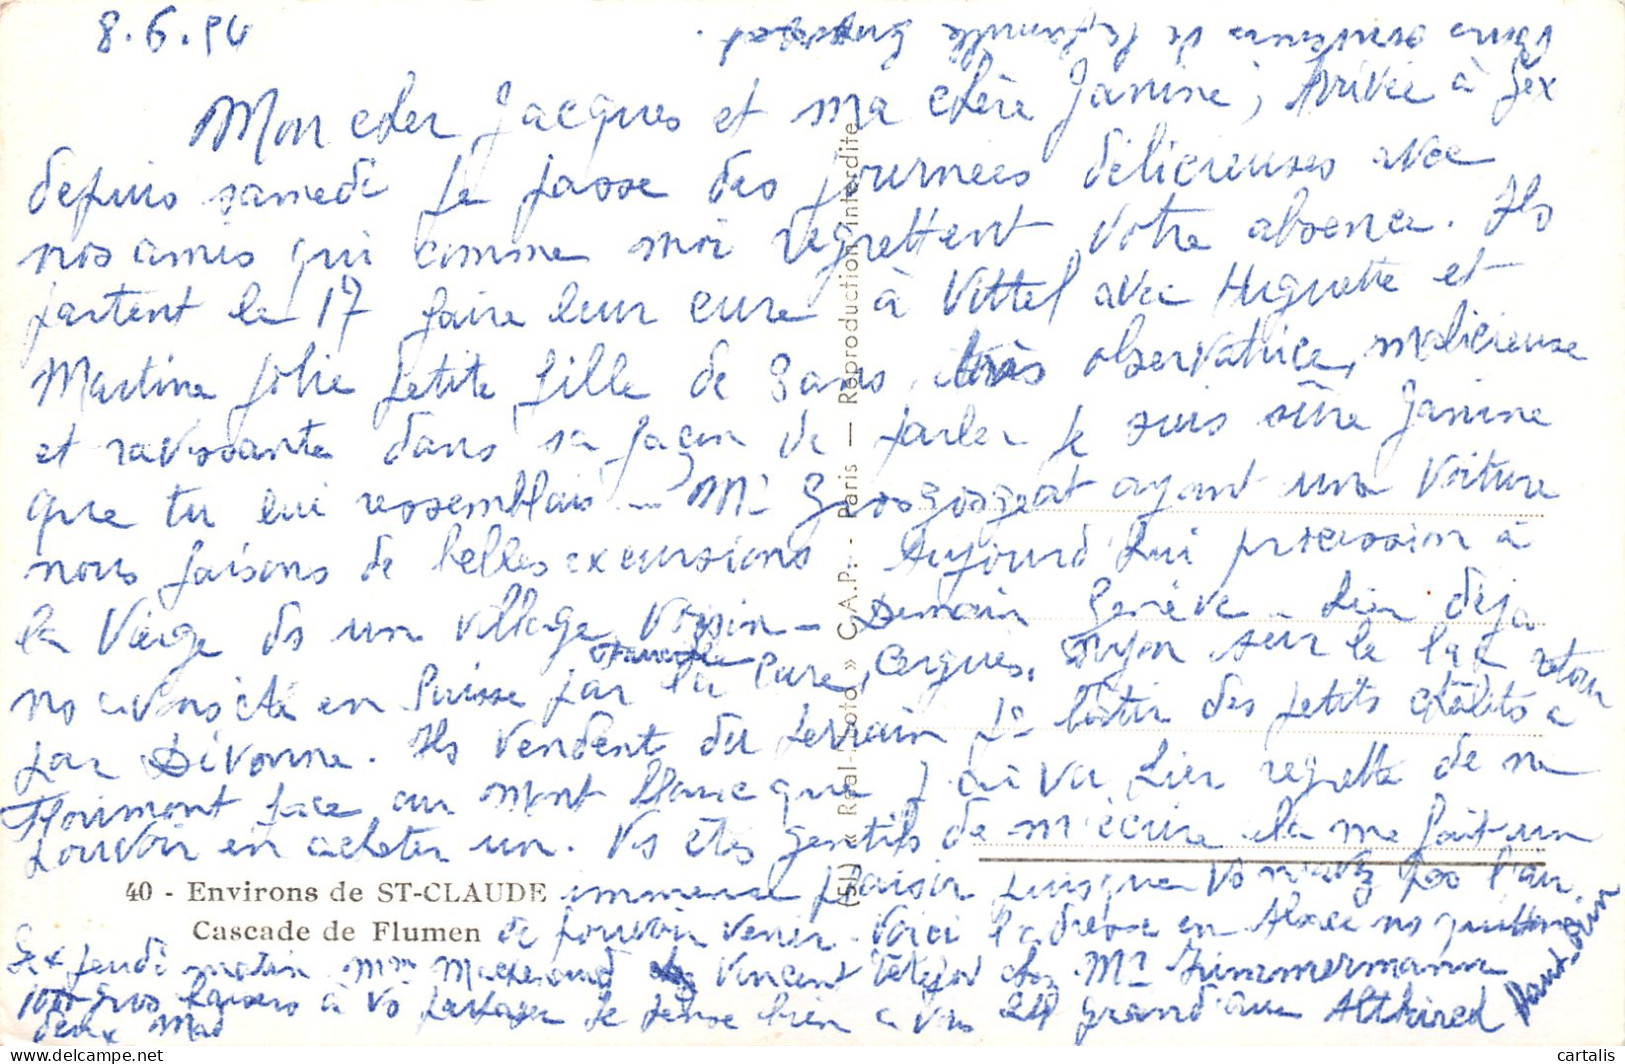 8.6.54
Mon cher Jacques et ma chère Janine, Arrivée à Gex
depuis samedi je passe des journées délicieuses avec
nos amis qui comme moi regrettent votre absence. Ils
partent le 17 faire leur cure à Vittel avec Huguette et
Martine jolie petite fille de 3 ans, très observatrice, malicieuse
et ravissante dans sa façon de parler je suis sûre Janine
que tu lui ressemblais - Mr ayant une voiture
nous faisons de belles excursions Aujourd'hui procession à
la Vierge ds un village voisin - Demain Genève - hier déja
ns avons été en Suisse par la Cure, Cergues, Nyon sur le lac retour
par Divonne. Ils vendent du terrain pr bâtir des petits châlets à
Flourimont face au Mont Blanc que j'ai vu hier regrette de ne
pouvoir en acheter un. Vs êtes gentils de m'écrire cela me fait un
immense plaisir puisque vs n'avez pas l'air
de pouvoir venir. Voici l'adresse en Alsace ns quittons
Gex jeudi matin Mme Vincent chez Mr Zimmermann
1000 gros baisers à vs partager je pense bien à vous 24 grand'rue Altkirch Haut-Rhin
deux Mad
bons souvenirs de la famille
40 - Environs de ST-CLAUDE
Cascade de Flumen
(51) « Real-Photo » C.A.P. - Paris — Reproduction interdite
cartalis